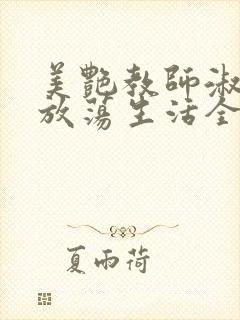 美艷教師淑
放蕩生活全
夏雨荷